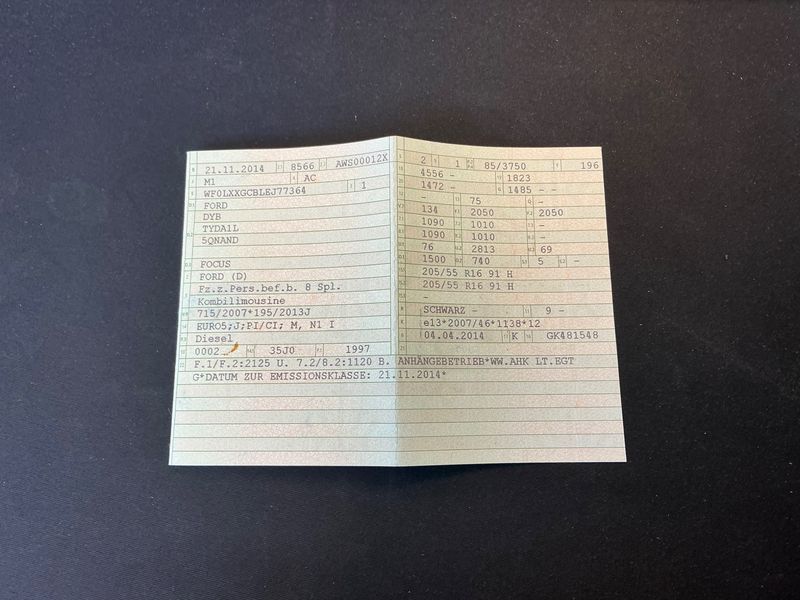 21.11.2014 8566 AWS00012X
M1 AC
WF0LXXGCBLEJ77364 1
FORD
DYB
TYDA1L
5QNAND
FOCUS
FORD (D)
Fz.z.Pers.bef.b. 8 Spl.
Kombilimousine
715/2007*195/2013J
EURO5;J;PI/CI; M, N1 I
Diesel
0002 35J0 1997
F.1/F.2:2125 U. 7.2/8.2:1120 B. ANHÄNGEBETRIEB*WW.AHK LT.EGT
G*DATUM ZUR EMISSIONSKLASSE: 21.11.2014*
2 1 85/3750 196
4556 - 1823
1472 - 1485 - -
- 75 -
134 2050 2050
1090 1010 -
1090 1010 -
76 2813 69
1500 740 5 -
205/55 R16 91 H
205/55 R16 91 H
-
SCHWARZ - 9 -
e13*2007/46*1138*12
04.04.2014 K GK481548